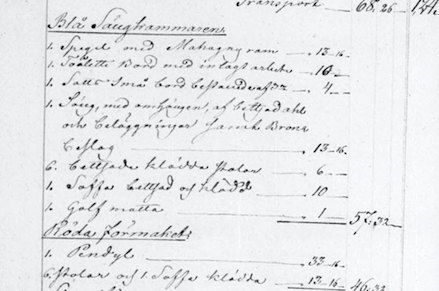 Transport — 68,26 — 124
Blå Sängkammaren
1. Spegel med Mahagny ram — 13 16
1. Toilette Bord med inlagt arbete — 10 —
1. Satts Små bord bestående af — 4 —
1. Säng, med omhängen, af
och beläggningar samt Brons
Beslag — 13 16
6. klädda stolar — 6 —
1. Soffa och klädd — 10
1. Golf matta — 1 — 57,32
Röda Förmaket
1. Pendyl — 33 16
6. Stolar och 1 Soffa klädda — 13 16 — 46,32